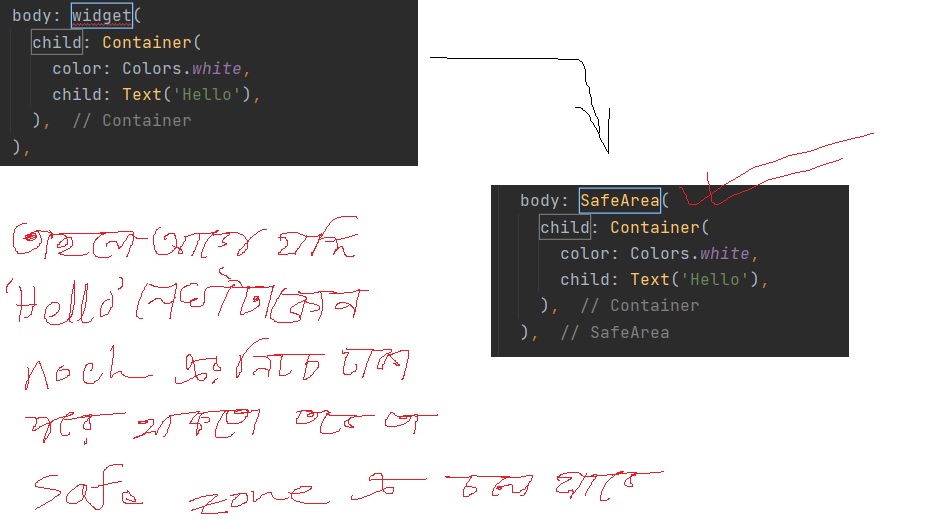 body: widget(
child: Container(
color: Colors.white,
child: Text('Hello'),
), // Container
),
body: SafeArea(
child: Container(
color: Colors.white,
child: Text('Hello'),
), // Container
), // SafeArea
তাহলে আগে যদি
'Hello' লেখাটা কোন
noch এর নিচে ঢাকা
পরে থাকতো তবে তা
Safe zone এ চলে যাবে